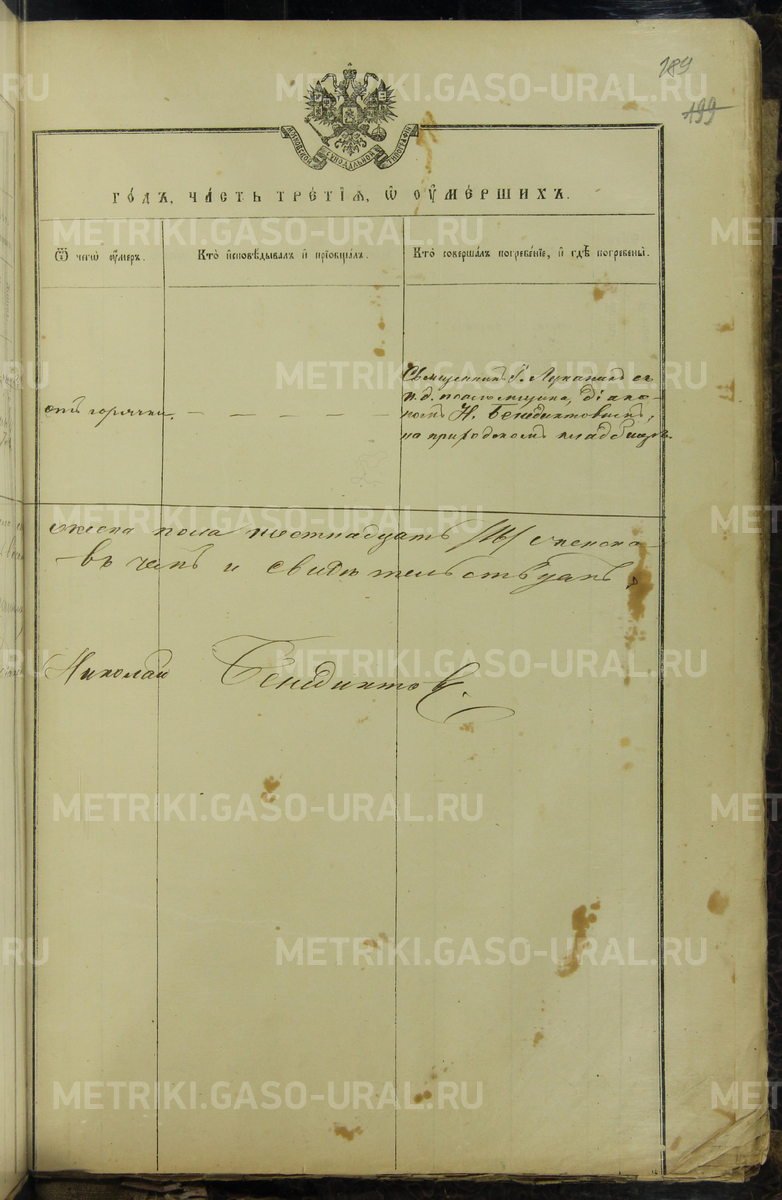 189
199
МОСКОВСКОЙ СѴНОДАЛЬНОЙ ТИПОГРАФІИ
ГО́ДЪ, ЧА́СТЬ ТРЕ́ТІѦ, Ѡ҆ ОУ҆МЕ́РШИХЪ.
Ѿ чегѡ̀ оу҆́меръ.
Кто̀ и҆сповѣ́дывалъ и҆ прїѡбща́лъ.
Кто̀ соверша́лъ погребе́нїе, и҆ гдѣ̀ погребены̀.
отъ горячки.
Священникъ Г. Луканинъ съ
и. д. псаломщика, діако-
номъ Н. Бенедиктовымъ,
на приходскомъ кладбищѣ.
женска пола шестнадцать /16/ 
въ чемъ и свидѣтельствуемъ
Николай Бенедиктовъ.
METRIKI.GASO-URAL.RU